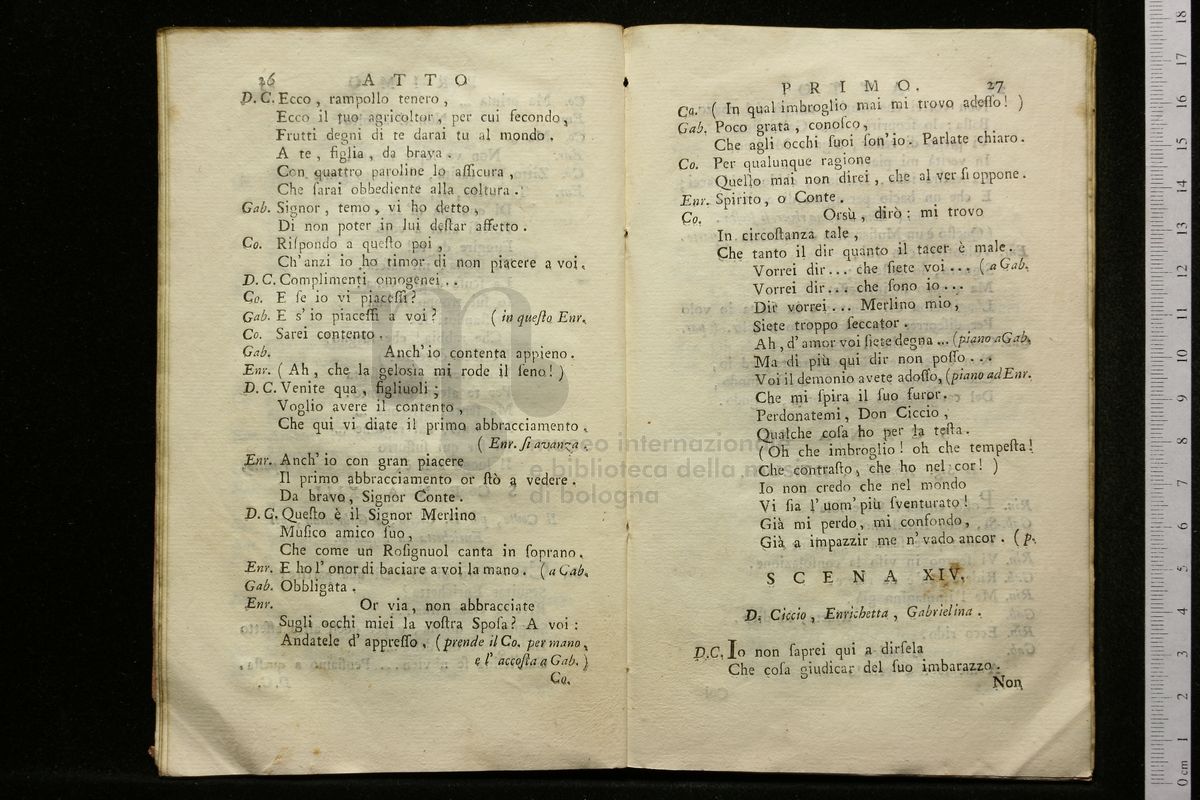 26 ATTO
D. C. Ecco , rampollo tenero ,
Ecco il tuo agricoltor , per cui fecondo ,
Frutti degni di te darai tu al mondo .
A te , figlia , da brava .
Con quattro paroline lo aſſicura ,
Che ſarai obbediente alla coltura .
Gab. Signor , temo , vi ho detto ,
Di non poter in lui deſtar affetto .
Co. Riſpondo a queſto poi ,
Ch' anzi io ho timor di non piacere a voi .
D. C. Complimenti omogenei . .
Co. E ſe io vi piaceſſi ?
Gab. E s' io piaceſſi a voi ? ( in queſto Enr.
Co. Sarei contento .
Gab. Anch' io contenta appieno .
Enr. ( Ah , che la geloſia mi rode il ſeno ! )
D. C. Venite qua , figliuoli ;
Voglio avere il contento ,
Che qui vi diate il primo abbracciamento .
( Enr. ſi avanza .
Enr. Anch' io con gran piacere
Il primo abbracciamento or ſtò a vedere .
Da bravo , Signor Conte .
D. C. Queſto è il Signor Merlino
Muſico amico ſuo ,
Che come un Roſignuol canta in ſoprano .
Enr. E ho l' onor di baciare a voi la mano . ( a Gab.
Gab. Obbligata .
Enr. Or via , non abbracciate
Sugli occhi miei la voſtra Spoſa ? A voi :
Andatele d' appreſſo , ( prende il Co. per mano ,
e l' accoſta a Gab. )
Co.
PRIMO. 27
Co. ( In qual imbroglio mai mi trovo adeſſo ! )
Gab. Poco grata , conoſco ,
Che agli occhi ſuoi ſon' io . Parlate chiaro .
Co. Per qualunque ragione
Queſto mai non direi , che al ver ſi oppone .
Enr. Spirito , o Conte .
Co. Orsù , dirò : mi trovo
In circoſtanza tale ,
Che tanto il dir quanto il tacer è male .
Vorrei dir . . . che ſiete voi . . . ( a Gab.
Vorrei dir . . . che ſono io . . .
Dir vorrei . . . Merlino mio ,
Siete troppo ſeccator .
Ah , d' amor voi ſiete degna ... ( piano a Gab.
Ma di più qui dir non poſſo . . .
Voi il demonio avete adoſſo , ( piano ad Enr.
Che mi ſpira il ſuo furor .
Perdonatemi , Don Ciccio ,
Qualche coſa ho per la teſta .
( Oh che imbroglio ! oh che tempeſta !
Che contraſto , che ho nel cor ! )
Io non credo che nel mondo
Vi ſia l' uom' più ſventurato !
Già mi perdo , mi confondo ,
Già a impazzir me n' vado ancor . ( p.
SCENA XIV.
D. Ciccio , Enrichetta , Gabrielina .
D.C. Io non ſaprei qui a dirſela
Che coſa giudicar del ſuo imbarazzo .
Non
museo internazionale
e biblioteca della musica
di bologna